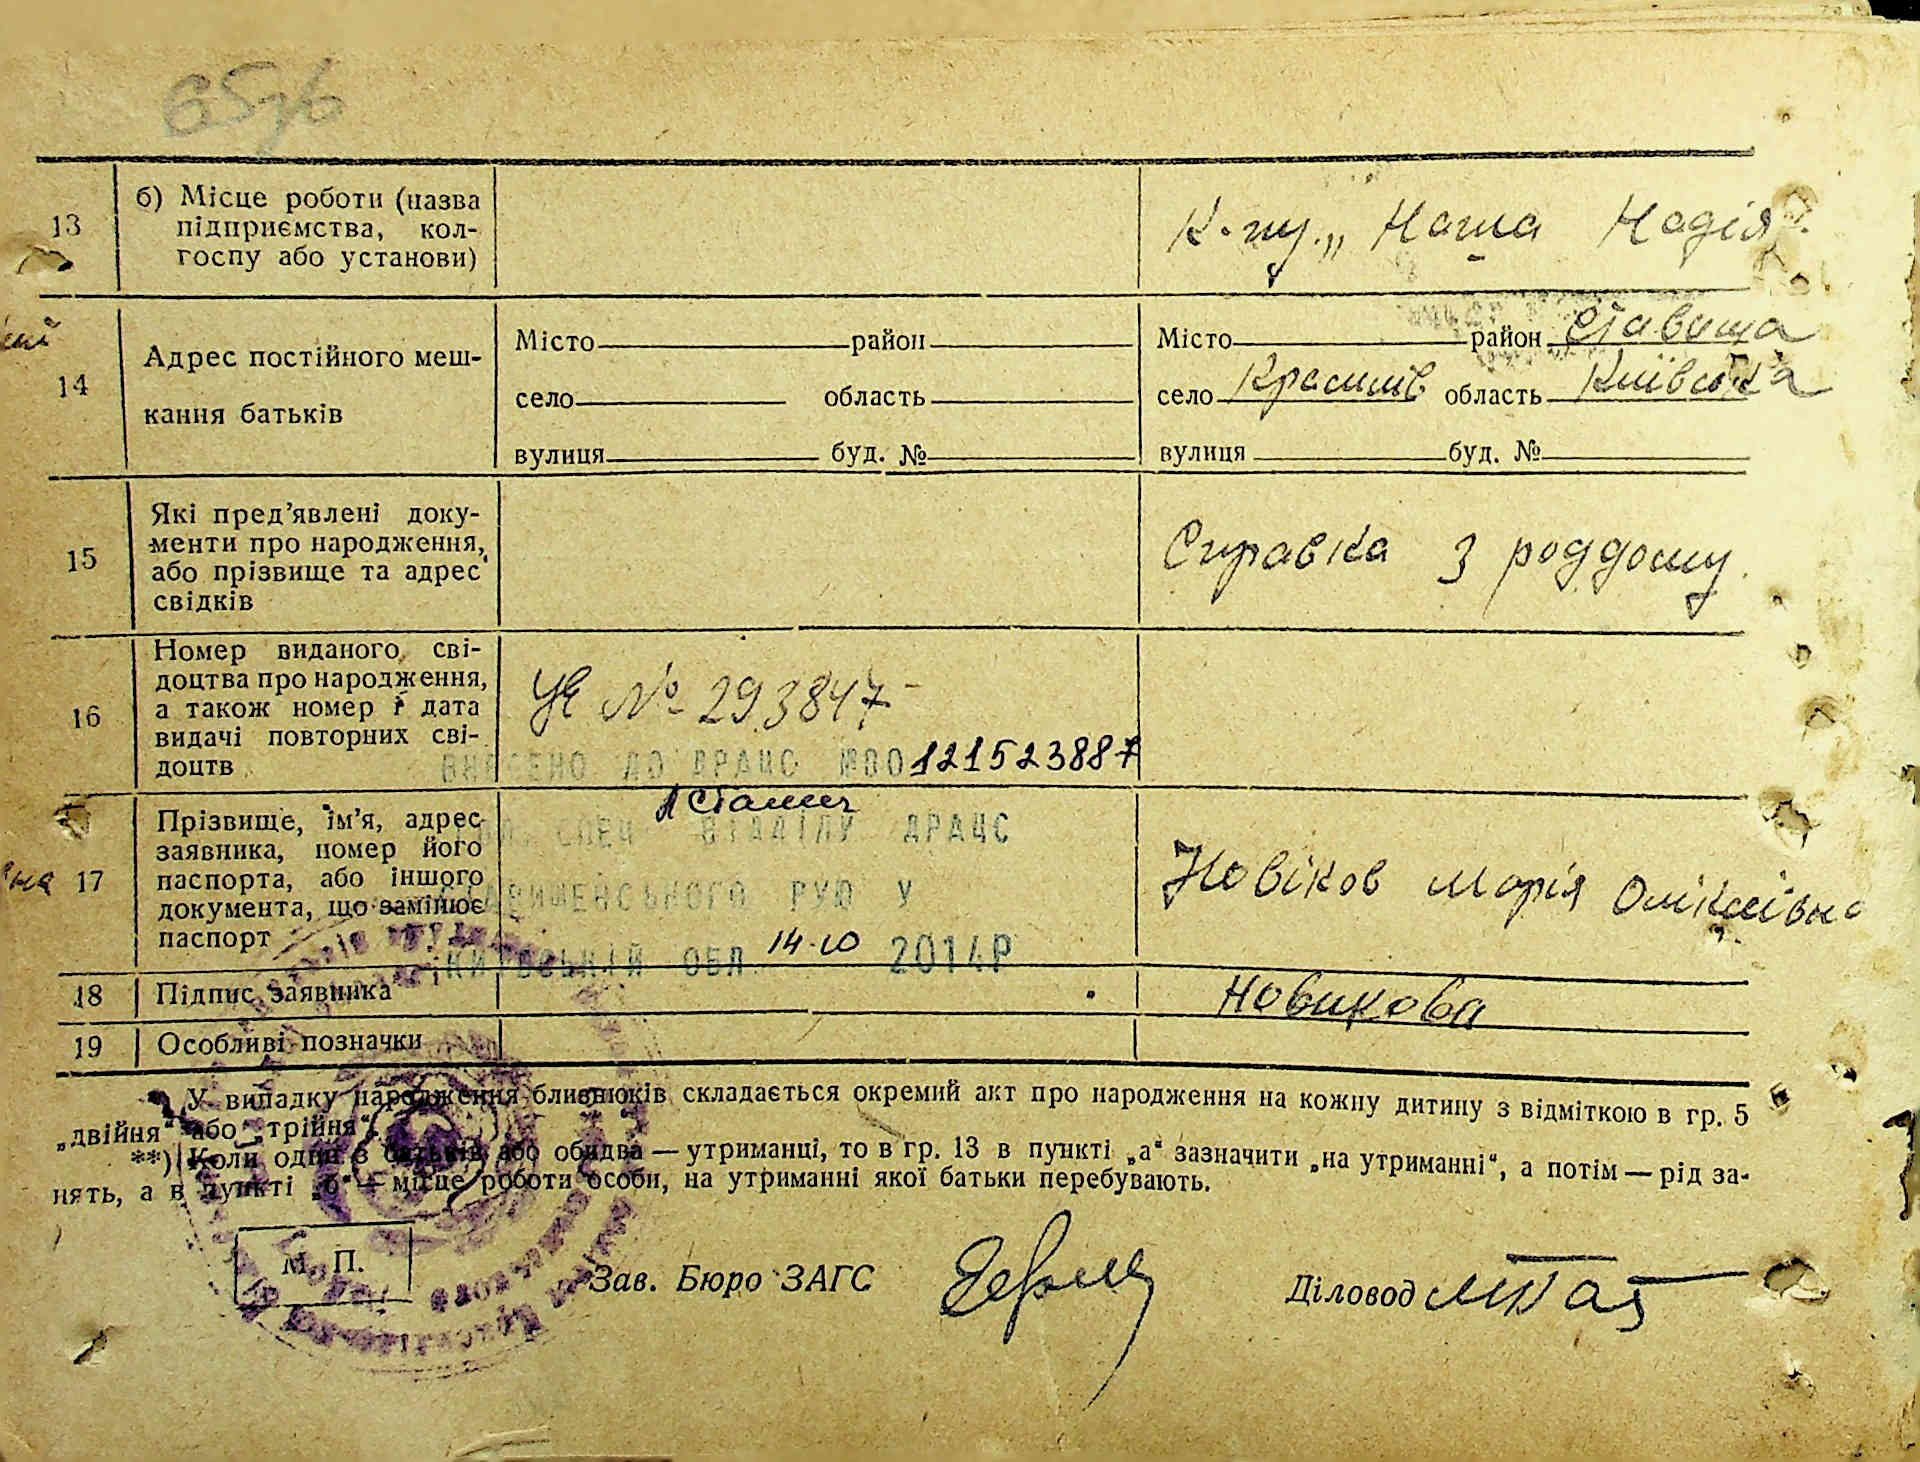 13
б) Місце роботи (назва
підприємства, кол-
госпу або установи)
К-пу. „ Наша Надія
14
Адрес постійного меш-
кання батьків
Місто район
село область
вулиця буд. №
Місто район Ставища
село Красилів область Київська
вулиця буд. №
15
Які пред’явлені доку-
менти про народження,
або прізвище та адрес
свідків
Справка з роддому
16
Номер виданого сві-
доцтва про народження,
а також номер і дата
видачі повторних сві-
доцтв
УЄ № 293847
ВНЕСЕНО ДО ДРАЦС №00121523887
17
Прізвище, ім’я, адрес
заявника, номер його
паспорта, або іншого
документа, що замінює
паспорт
СПЕЦ ВІДДІЛУ ДРАЦС
СТАВИЩЕНСЬКОГО РУЮ У
КИЇВСЬКІЙ ОБЛ 14.10 2014Р
Новіков Марія
18
Підпис заявника
Новикова
19
Особливі позначки
*) У випадку народження близнюків складається окремий акт про народження на кожну дитину з відміткою в гр. 5
„двійня“ або „трійня“.
**) Коли один з батьків або обидва — утриманці, то в гр. 13 в пункті „а“ зазначити „на утриманні“, а потім — рід за-
нять, а в пункті „б“ — місце роботи особи, на утриманні якої батьки перебувають.
М. П.
Зав. Бюро ЗАГС
Діловод